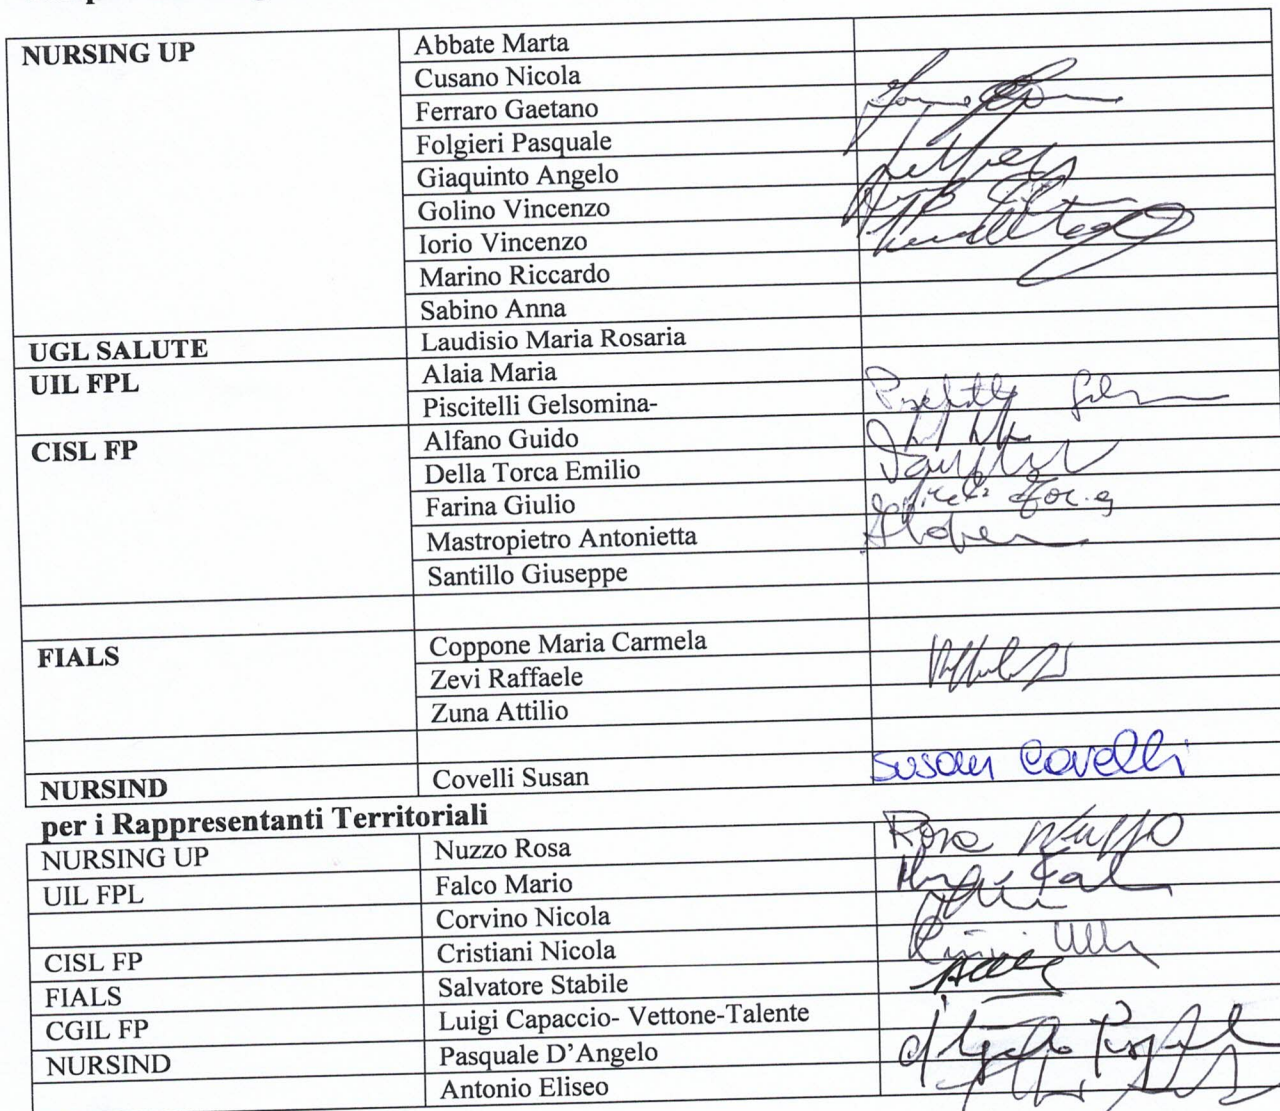 NURSING UP Abbate Marta
Cusano Nicola
Ferraro Gaetano
Folgieri Pasquale
Giaquinto Angelo
Golino Vincenzo
Iorio Vincenzo
Marino Riccardo
Sabino Anna
UGL SALUTE Laudisio Maria Rosaria
UIL FPL Alaia Maria
Piscitelli Gelsomina-
CISL FP Alfano Guido
Della Torca Emilio
Farina Giulio
Mastropietro Antonietta
Santillo Giuseppe
FIALS Coppone Maria Carmela
Zevi Raffaele
Zuna Attilio
NURSIND Covelli Susan Susan Covelli
per i Rappresentanti Territoriali
NURSING UP Nuzzo Rosa Rosa Nuzzo
UIL FPL Falco Mario
Corvino Nicola
CISL FP Cristiani Nicola
FIALS Salvatore Stabile
CGIL FP Luigi Capaccio- Vettone-Talente
NURSIND Pasquale D'Angelo
Antonio Eliseo